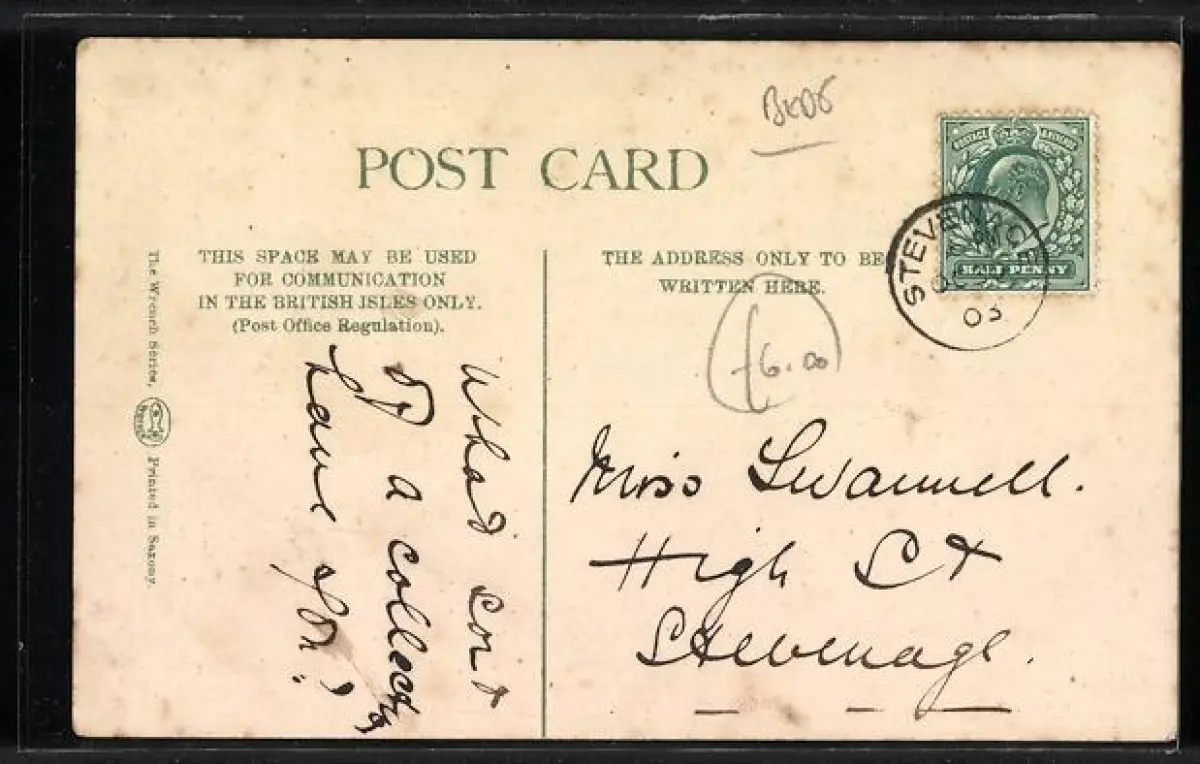 BKOS
POST CARD
POSTAGE REVENUE
HALF PENNY
STEVENAGE
OC
03
THIS SPACE MAY BE USED
FOR COMMUNICATION
IN THE BRITISH ISLES ONLY.
(Post Office Regulation).
THE ADDRESS ONLY TO BE
WRITTEN HERE.
£6.00
The Wrench Series, Printed in Saxony
What sort
of a collectn
have you?
Miss Swannell.
High St
Stevenage.